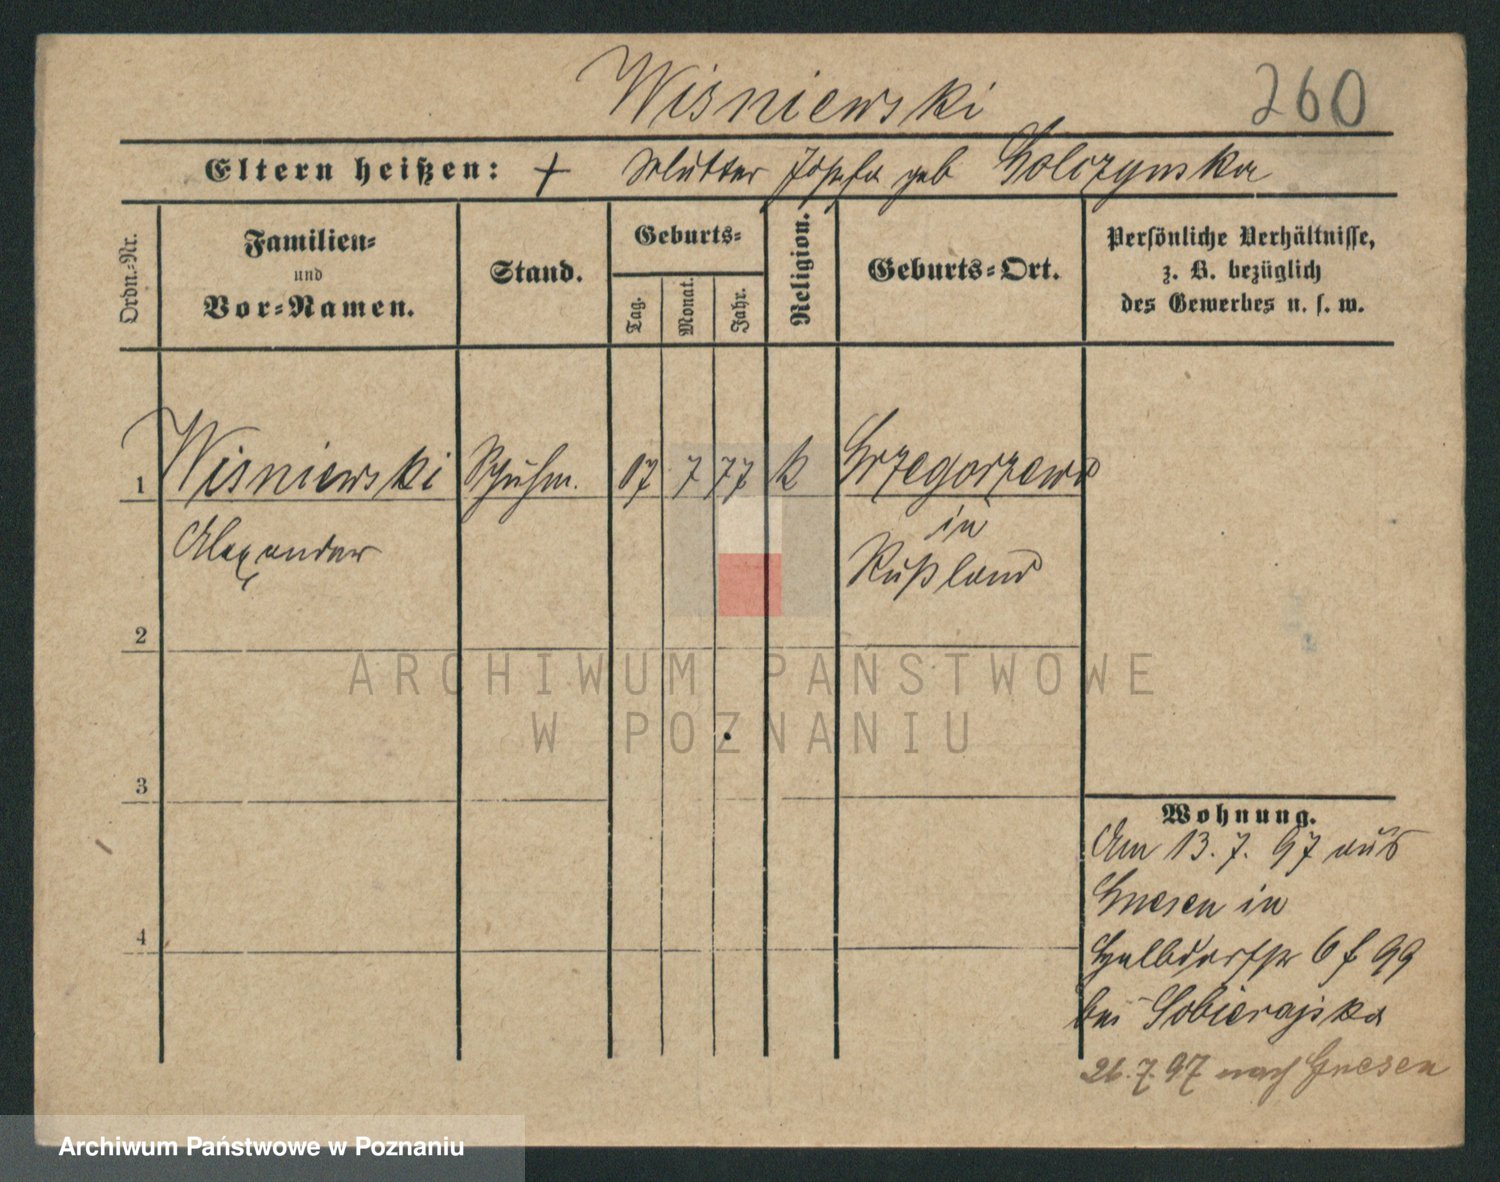 Wisniewski 260
Eltern heißen: + Mutter Josefa geb Golczynska
Ordn.-Nr.
Familien-
und
Vor-Namen.
Stand.
Geburts-
Tag.
Monat.
Jahr.
Religion.
Geburts-Ort.
Persönliche Verhältnisse,
z. B. bezüglich
des Gewerbes u. s. w.
1 Wisniewski Schuhm. 07 7 77 k Grzegorzewo
Alexander
in
Rußland
2
3
4
Wohnung.
Am 13. 7. 97 aus
Gnesen in
Halbdorfstr 6 f 99
bei Sobierajska
26. 7. 97 nach Gnesen
ARCHIWUM PAŃSTWOWE
W POZNANIU
Archiwum Państwowe w Poznaniu